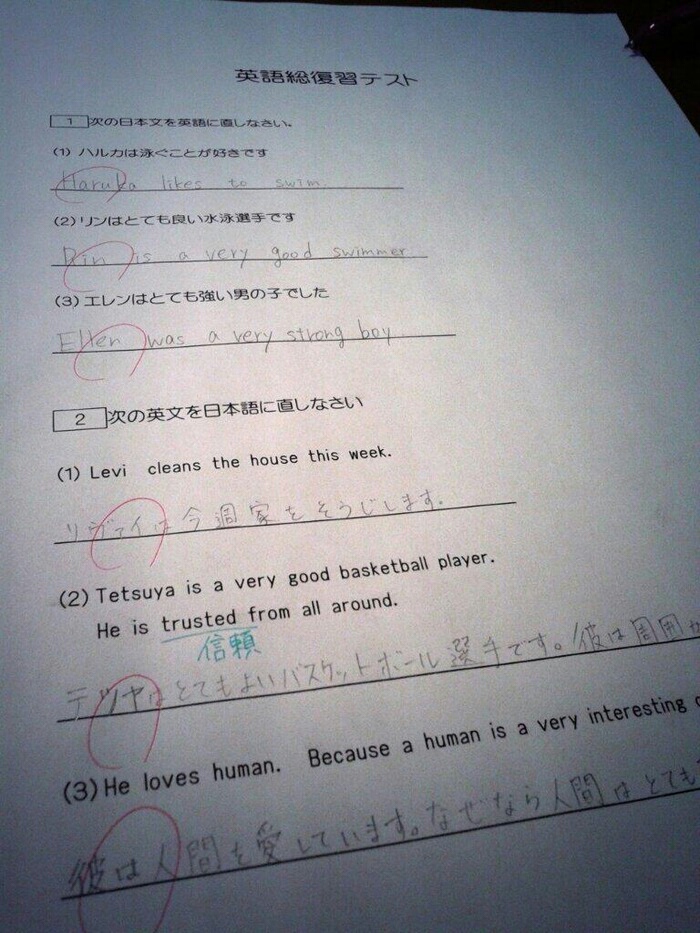 英語総復習テスト
1 次の日本文を英語に直しなさい。
(1) ハルカは泳ぐことが好きです
Haruka likes to swim.
(2) リンはとても良い水泳選手です
Rin is a very good swimmer.
(3) エレンはとても強い男の子でした
Ellen was a very strong boy.
2 次の英文を日本語に直しなさい
(1) Levi cleans the house this week.
リヴァイは今週家をそうじします。
(2) Tetsuya is a very good basketball player.
He is trusted from all around.
信頼
テツヤはとてもよいバスケットボール選手です。彼は周囲か
(3) He loves human. Because a human is a very interesting
彼は人間を愛しています。なぜなら人間はとても